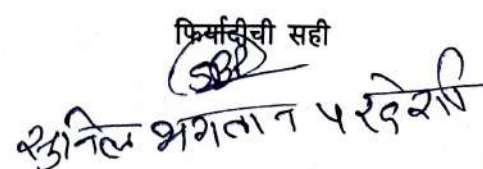 फिर्यादीची सही
सुनिल भगवान परदेशी